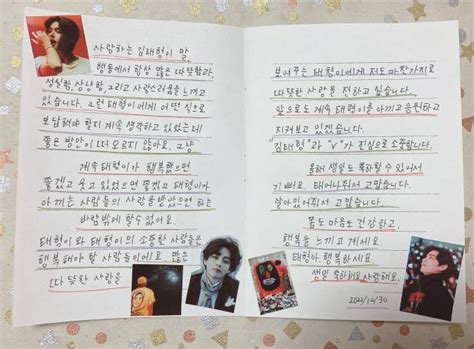 사랑하는 김태형이 말,
행동에서 항상 많은 따뜻함과,
성실함, 상냥함, 그리고 사랑스러움을 느끼고
있습니다. 그런 태형이에게 어떤 식으로
보답해야 할지 계속 생각하고 있었는데
좋은 방안이 떠오르지 않아요. 그냥
계속 태형이가 행복했으면
좋겠고 웃고 있었으면 좋겠고 태형이가
아끼는 사람들의 사랑을 받았으면 하는
바람밖에 할 수 없어요.
태형이와 태형이의 소중한 사람들은
행복해야 할 사람들이에요. 많은
따뜻한 사랑을
보여주는 태형이에게 저도 마찬가지로
따뜻한 사랑을 전하고 싶습니다.
앞으로도 계속 태형이를 아끼고 응원하고
지켜보고 있겠습니다.
"김태형"과 "V"가 진심으로 소중합니다.
올해 생일도 축하할 수 있어서
기뻐요. 태어나줘서 고맙습니다.
살아있어줘서 고맙습니다.
몸도 마음도 건강하고,
행복을 느끼고 계세요.
태형아, 행복하세요.
생일 축하해요 사랑해요.
2022/12/30